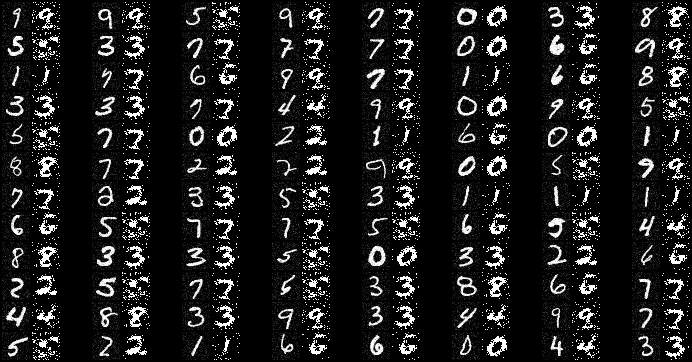 9 9 9 9 5 9 9 7 7 0 0 3 3 8 8
5 3 3 7 7 7 7 7 7 0 0 6 6 9 9
1 1 7 7 6 6 9 9 7 7 1 1 6 6 8 8
3 3 3 3 7 7 4 4 9 9 0 0 9 9 5
5 7 7 0 0 2 2 1 1 6 6 0 0 1 1
8 8 7 7 2 2 2 2 9 9 0 0 5 9 9
7 7 2 2 3 3 5 3 3 1 1 1 1 1 1
6 6 5 7 7 7 7 5 6 6 5 4 4
8 8 3 3 3 3 5 0 0 3 3 2 2 6 6
2 2 5 7 7 5 3 3 8 8 6 6 7 7
4 4 8 8 3 3 9 9 3 3 4 4 9 9 7 7
5 2 2 1 1 6 6 6 6 0 0 4 4 3 3